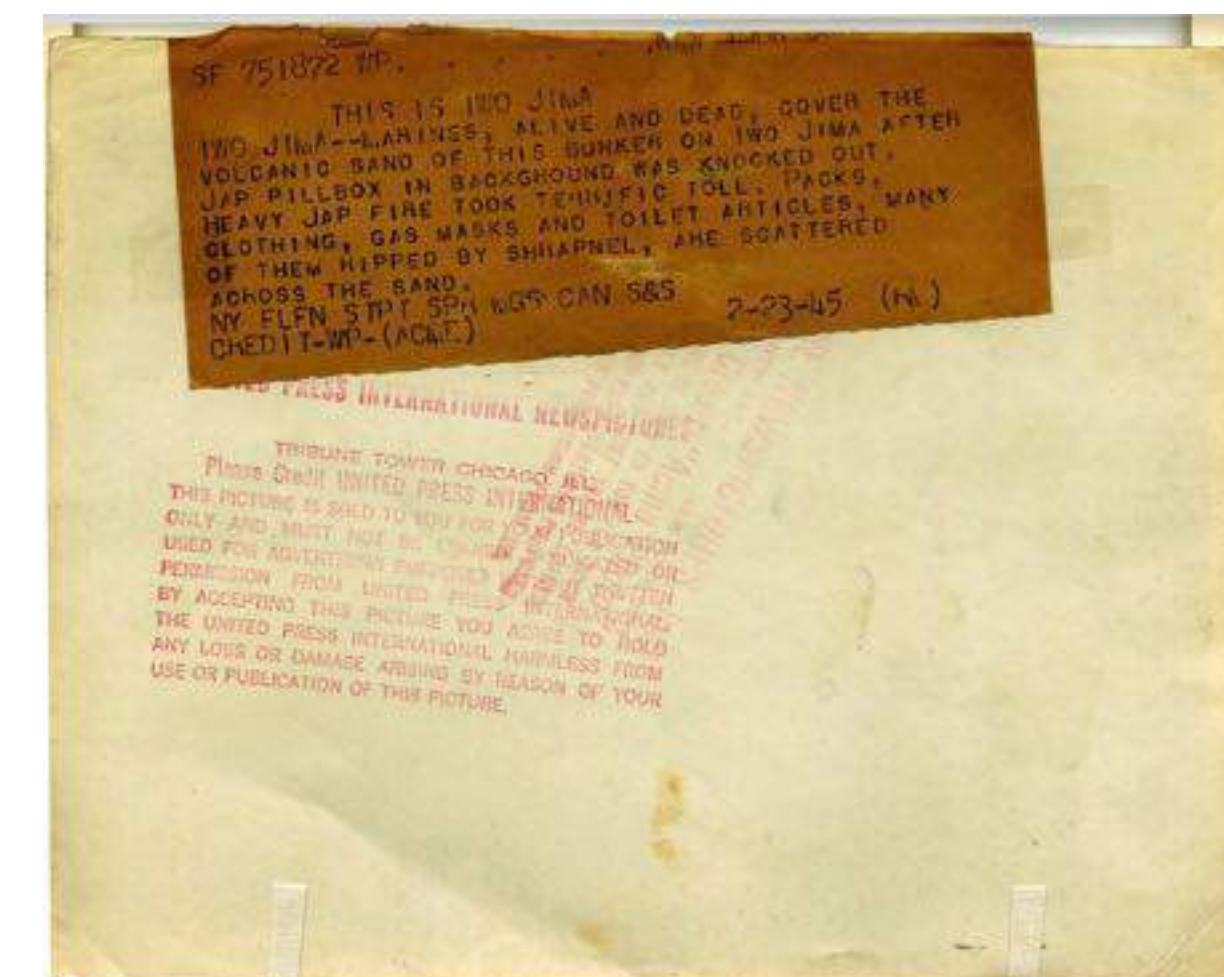 SF 751872 WP. . . . .
THIS IS IWO JIMA
IWO JIMA--MARINES, ALIVE AND DEAD, COVER THE
VOLCANIC SAND OF THIS BUNKER ON IWO JIMA AFTER
JAP PILLBOX IN BACKGROUND WAS KNOCKED OUT.
HEAVY JAP FIRE TOOK TERRIFIC TOLL. PACKS,
CLOTHING, GAS MASKS AND TOILET ARTICLES, MANY
OF THEM RIPPED BY SHRAPNEL, ARE SCATTERED
ACROSS THE SAND.
NY FLFN STPT SPR WGR CAN S&S 2-23-45 (NL)
CREDIT-WP-(ACME)
PRESS INTERNATIONAL NEWSPICTURES
TRIBUNE TOWER CHICAGO, ILL.
Please Credit UNITED PRESS INTERNATIONAL
THIS PICTURE IS SOLD TO YOU FOR YOUR PUBLICATION
ONLY AND MUST NOT BE OR
USED FOR ADVERTISING PURPOSES WRITTEN
PERMISSION FROM UNITED PRESS INTERNATIONAL.
BY ACCEPTING THIS PICTURE YOU AGREE TO HOLD
THE UNITED PRESS INTERNATIONAL HARMLESS FROM
ANY LOSS OR DAMAGE ARISING BY REASON OF YOUR
USE OR PUBLICATION OF THIS PICTURE.